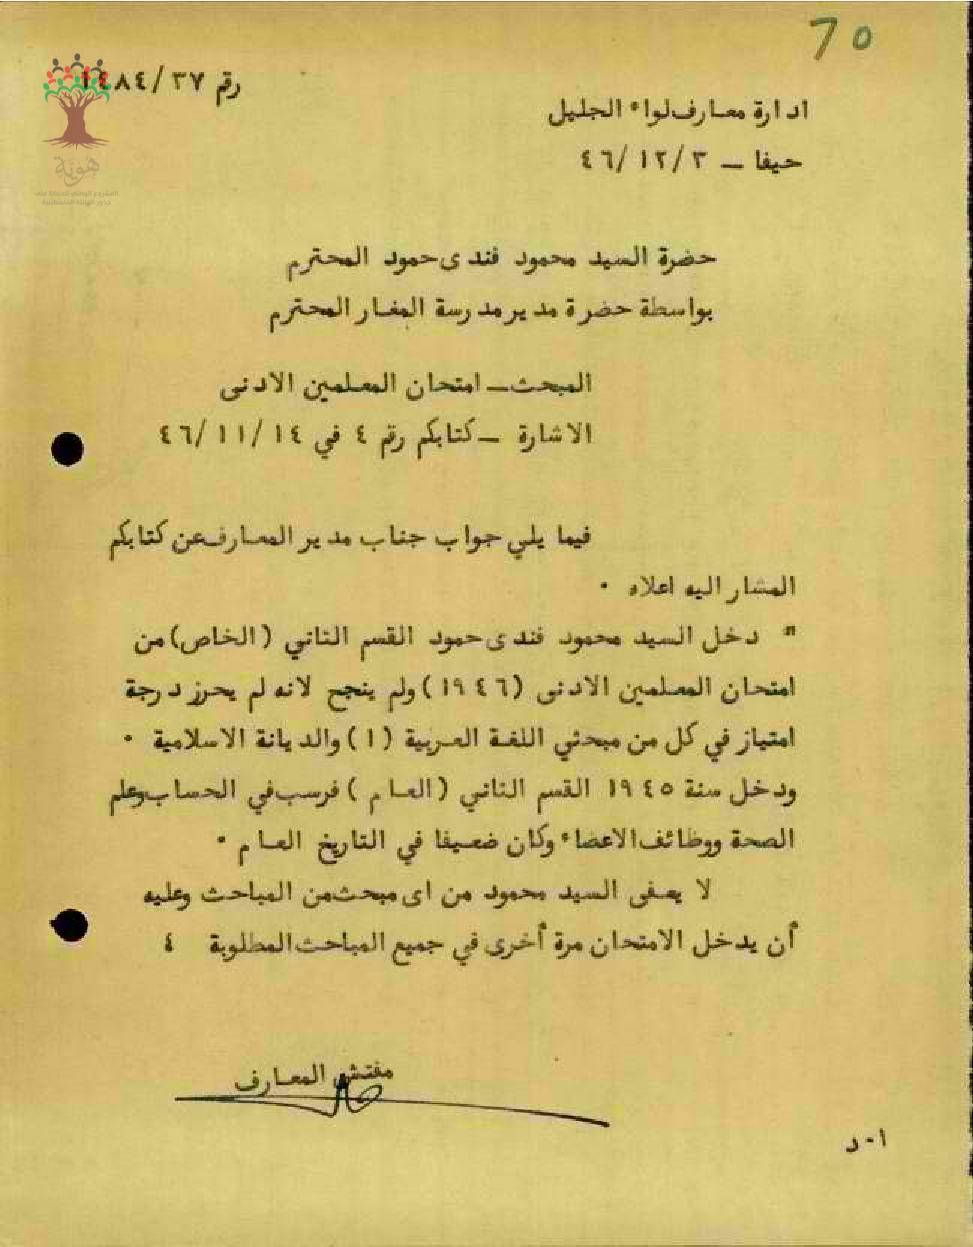 70
رقم ٣٧/١٤٨٤
ادارة معارف لواء الجليل
حيفا – ٤٦/١٢/٣
هوية
حضرة السيد محمود فندى حمود المحترم
بواسطة حضرة مدير مدرسة المغار المحترم
المبحث – امتحان المعلمين الادنى
الاشارة – كتابكم رقم ٤ في ٤٦/١١/١٤
فيما يلي جواب جناب مدير المعارف عن كتابكم
المشار اليه اعلاه .
" دخل السيد محمود فندى حمود القسم الثاني (الخاص) من
امتحان المعلمين الادنى (١٩٤٦) ولم ينجح لانه لم يحرز درجة
امتياز في كل من مبحثي اللغة العربية (١) والديانة الاسلامية .
ودخل سنة ١٩٤٥ القسم الثاني (العام) فرسب في الحساب وعلم
الصحة ووظائف الاعضاء وكان ضعيفا في التاريخ العام .
لا يعفى السيد محمود من اى مبحث من المباحث وعليه
أن يدخل الامتحان مرة أخرى في جميع المباحث المطلوبة ٤
مفتش المعارف
ا٠د